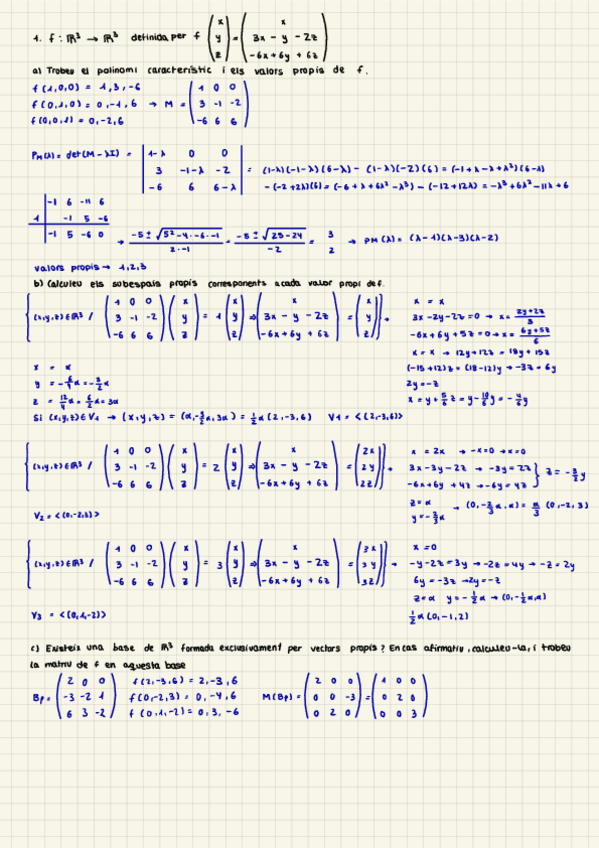 1. f : ℝ³ → ℝ³ definida per f (x y z) = (x, 3x - y - 2z, -6x + 6y + 6z)
a) Trobeu el polinomi característic i els valors propis de f.
f(1,0,0) = 1,3,-6
f(0,1,0) = 0,-1,6 → M = (1 0 0, 3 -1 -2, -6 6 6)
f(0,0,1) = 0,-2,6
P_M(λ) = det(M - λI) = |1-λ 0 0, 3 -1-λ -2, -6 6 6-λ| = (1-λ)(-1-λ)(6-λ) - (1-λ)(-2)(6) = (-1+λ-λ+λ²)(6-λ)
- (-2+2λ)(6) = (-6+λ+6λ²-λ³) - (-12+12λ) = -λ³+6λ²-11λ+6
-1 6 -11 6
1 -1 5 -6
-1 5 -6 0 → (-5 ± √(5²-4·-6·-1))/(2·-1) = (-5 ± √(25-24))/(-2) = 3 2 → PM(λ) = (λ-1)(λ-3)(λ-2)
valors propis → 1,2,3
b) Calculeu els subespais propis corresponents a cada valor propi de f.
{(x,y,z) ∈ ℝ³ / (1 0 0, 3 -1 -2, -6 6 6)(x y z) = 1 (x y z) ⇒ (x, 3x - y - 2z, -6x + 6y + 6z) = (x y z)} →
x = x
3x - 2y - 2z = 0 → x = (2y+2z)/3
-6x + 6y + 5z = 0 → x = (6y+5z)/6
x = x → 12y + 12z = 18y + 15z
(-15+12)z = (18-12)y → -3z = 6y
2y = -z
x = y + 5/6 z = y - 10/6 y = -4/6 y
x = α
y = -6/4 α = -3/2 α
z = 12/4 α = 6/2 α = 3α
Si (x,y,z) ∈ V1 → (x,y,z) = (α, -3/2 α, 3α) = 1/2 α (2,-3,6) V1 = <(2,-3,6)>
{(x,y,z) ∈ ℝ³ / (1 0 0, 3 -1 -2, -6 6 6)(x y z) = 2 (x y z) ⇒ (x, 3x - y - 2z, -6x + 6y + 6z) = (2x 2y 2z)} →
x = 2x → -x=0 → x=0
3x - 3y - 2z → -3y = 2z
-6x + 6y + 4z → -6y = 4z } z = -3/2 y
z = α
y = -2/3 α → (0, -2/3 α, α) = α/3 (0,-2,3)
V2 = <(0,-2,3)>
{(x,y,z) ∈ ℝ³ / (1 0 0, 3 -1 -2, -6 6 6)(x y z) = 3 (x y z) ⇒ (x, 3x - y - 2z, -6x + 6y + 6z) = (3x 3y 3z)} →
x = 0
-y - 2z = 3y → -2z = 4y → -z = 2y
6y = -3z → 2y = -z
z = α y = -1/2 α → (0, -1/2 α, α)
1/2 α (0,-1,2)
V3 = <(0,1,-2)>
c) Existeix una base de ℝ³ formada exclusivament per vectors propis? En cas afirmatiu, calculeu-la, i trobeu
la matriu de f en aquesta base
Bp = (2 0 0, -3 -2 1, 6 3 -2) f(2,-3,6) = 2,-3,6
f(0,-2,3) = 0,-4,6
f(0,1,-2) = 0,3,-6
M(Bp) = (2 0 0, 0 0 -3, 0 2 0) = (1 0 0, 0 2 0, 0 0 3)